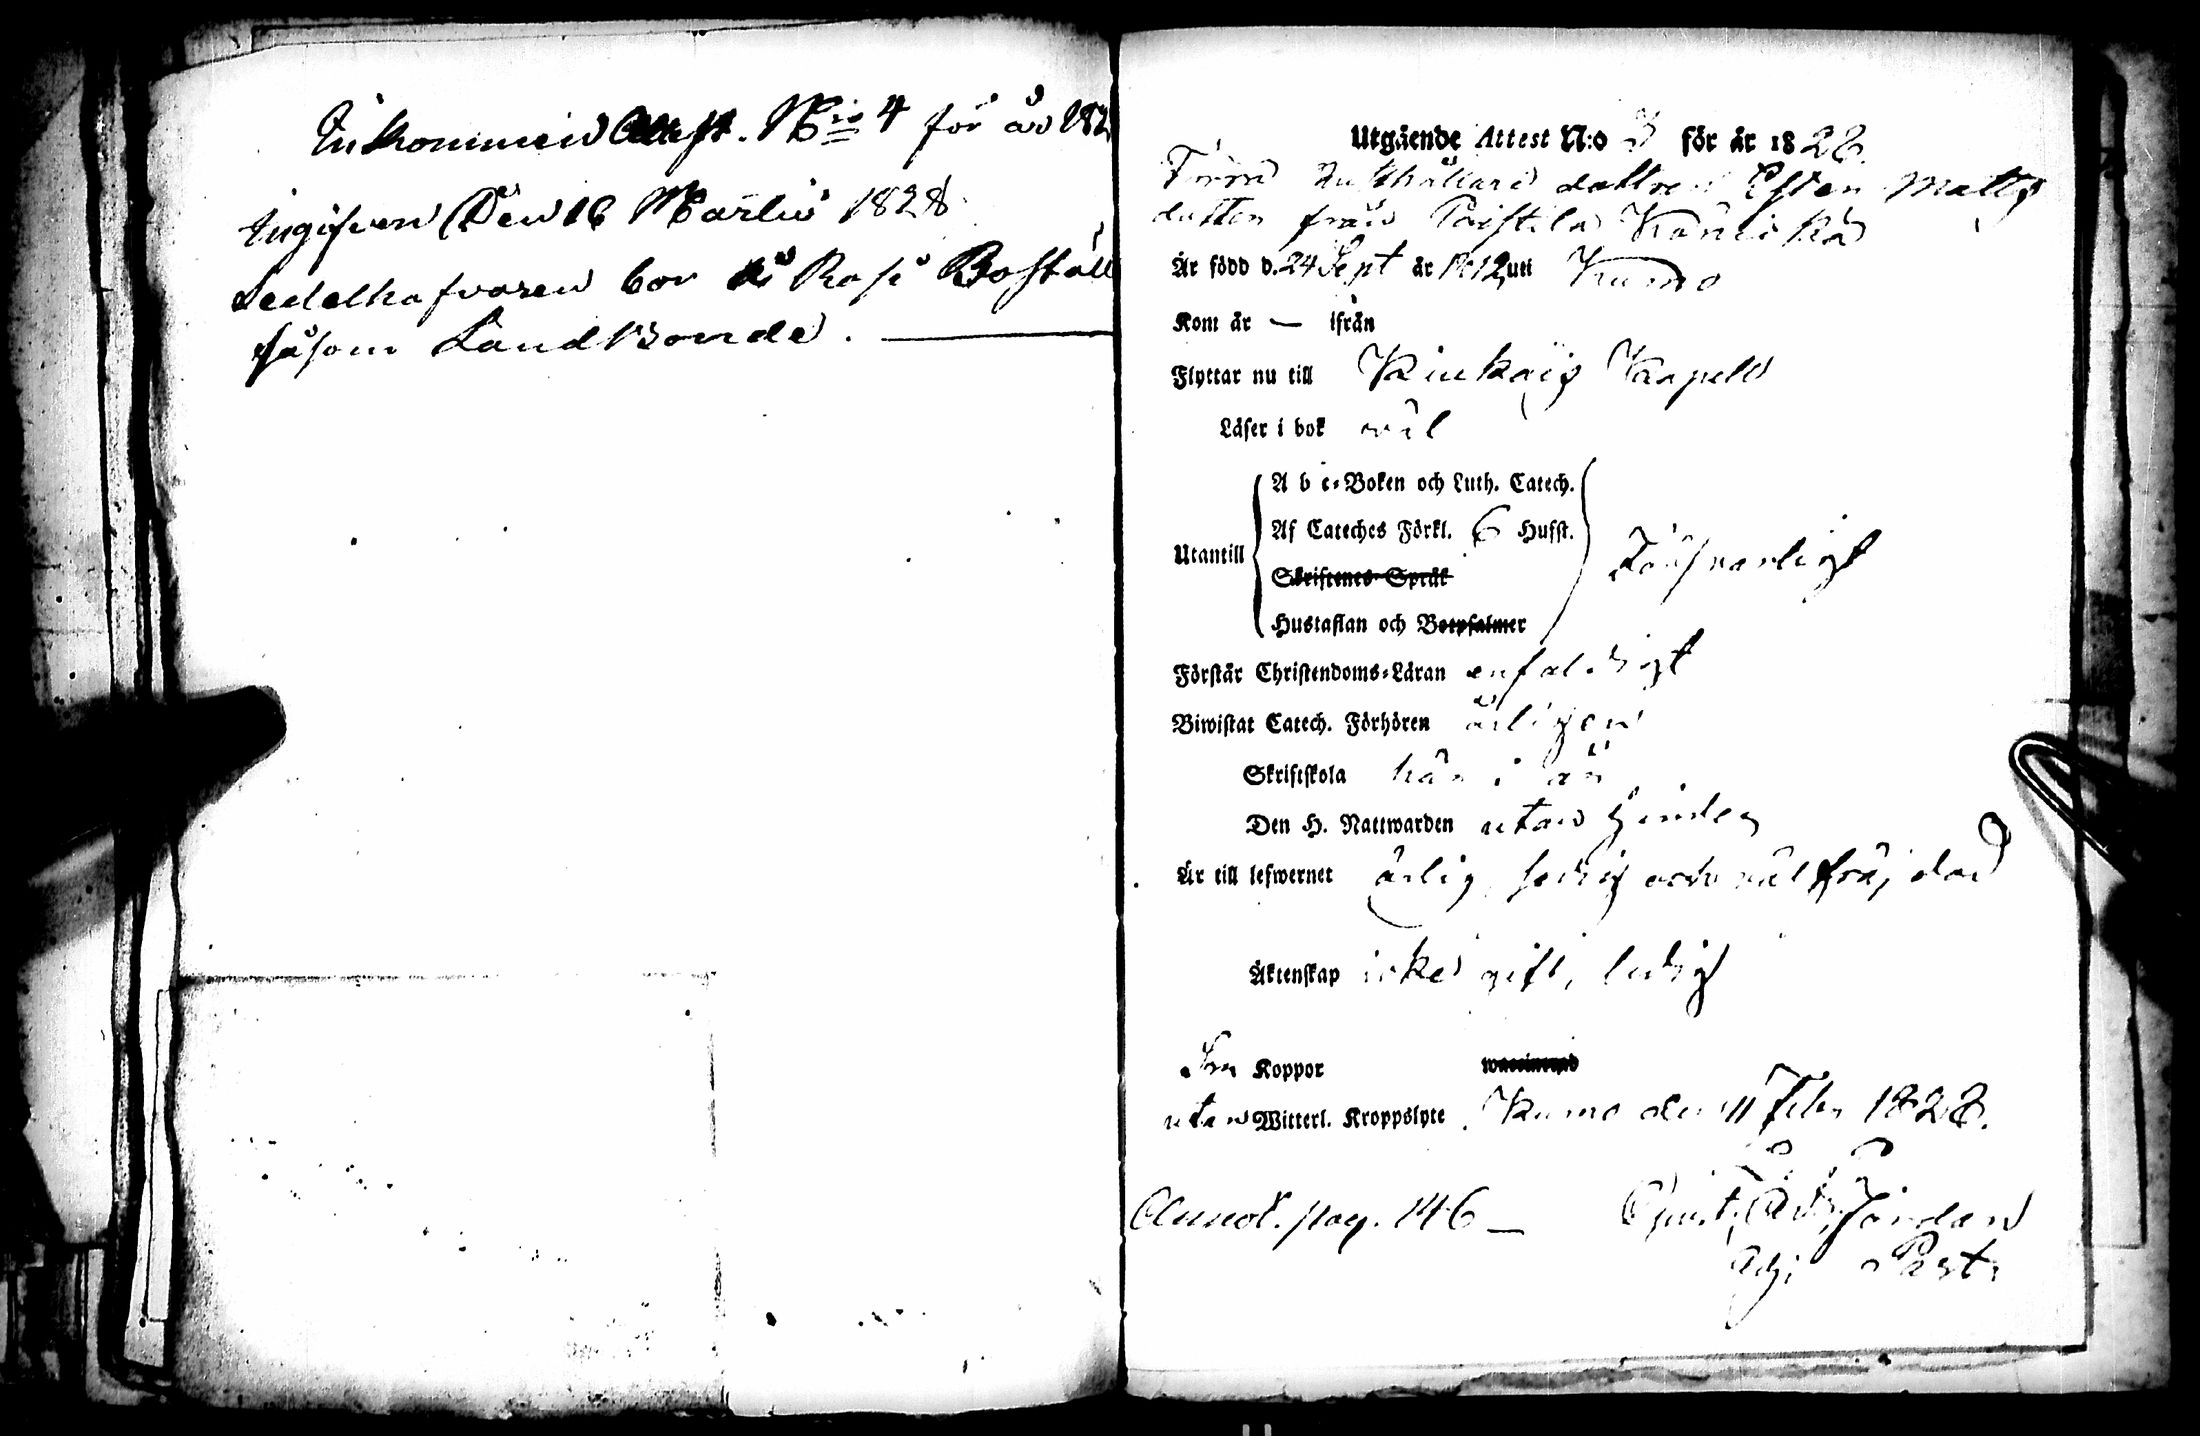 Inkommen Attest. N:ro 4 för år 182
Ingifven Den 16 Martii 1828
Sedelhafvaren bor å Kasi Boställ
såsom LandBonde.
Utgående Attest N:o 3 för år 1828.
Förre Rusthållare dottren Esten Matts
dotter från Paistila
Är född d. 24 Sept år 1812 uti Kumo
Kom år — ifrån
Flyttar nu till Kiukais Kapell
Läser i bok väl
A b c-Boken och Luth. Catech.
Af Cateches Förkl. 6 Hufst.
Utantill
Skriftenes Språk
Försvarligt
Hustaflan och Botpsalmer
Förstår Christendoms-Läran enfaldigt
Biwistat Catech. Förhören årligen
Skriftskola här i år
Den H. Nattwarden utan hinder
Är till lefwernet ärlig, sedig och väl fräjdad
Äktenskap icke gift, ledig
Koppor waccinerad
utan Witterl. Kroppslyte. Kumo den 11 Febr 1828.
Annot. pag. 146 —
Adj. Past.